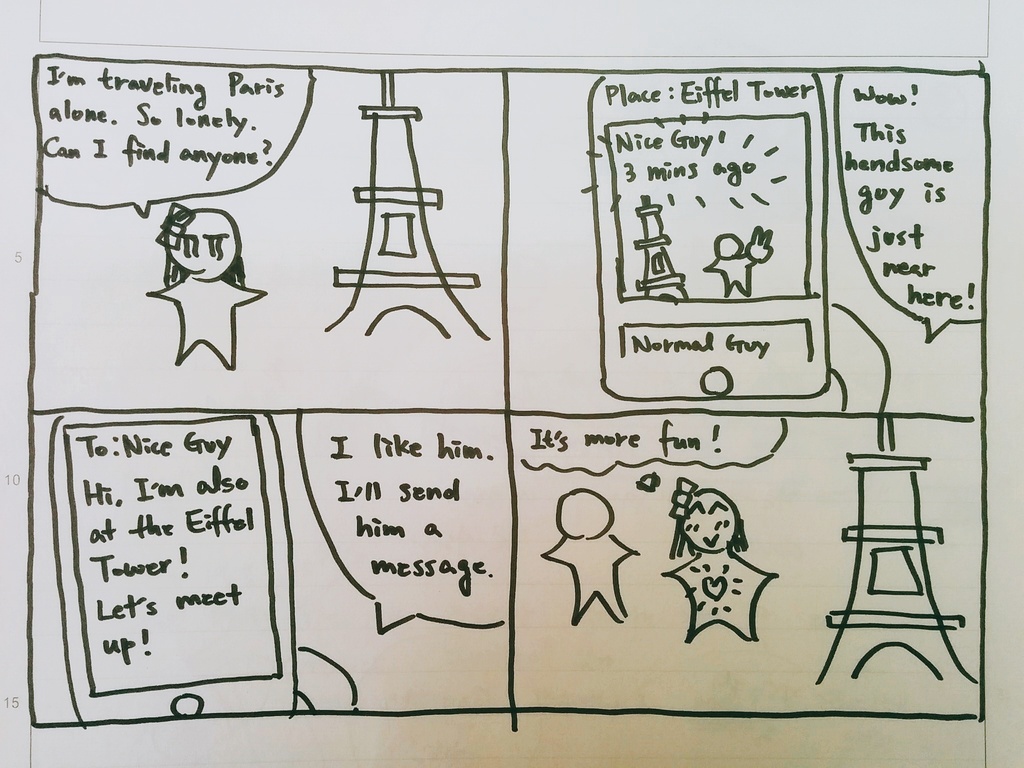 I'm traveling Paris
alone. So lonely.
Can I find anyone?
Place: Eiffel Tower
Nice Guy!
3 mins ago
Normal Guy
Wow!
This
handsome
guy is
just
near
here!
To: Nice Guy
Hi, I'm also
at the Eiffel
Tower!
Let's meet
up!
I like him.
I'll send
him a
message.
It's more fun!
5
10
15